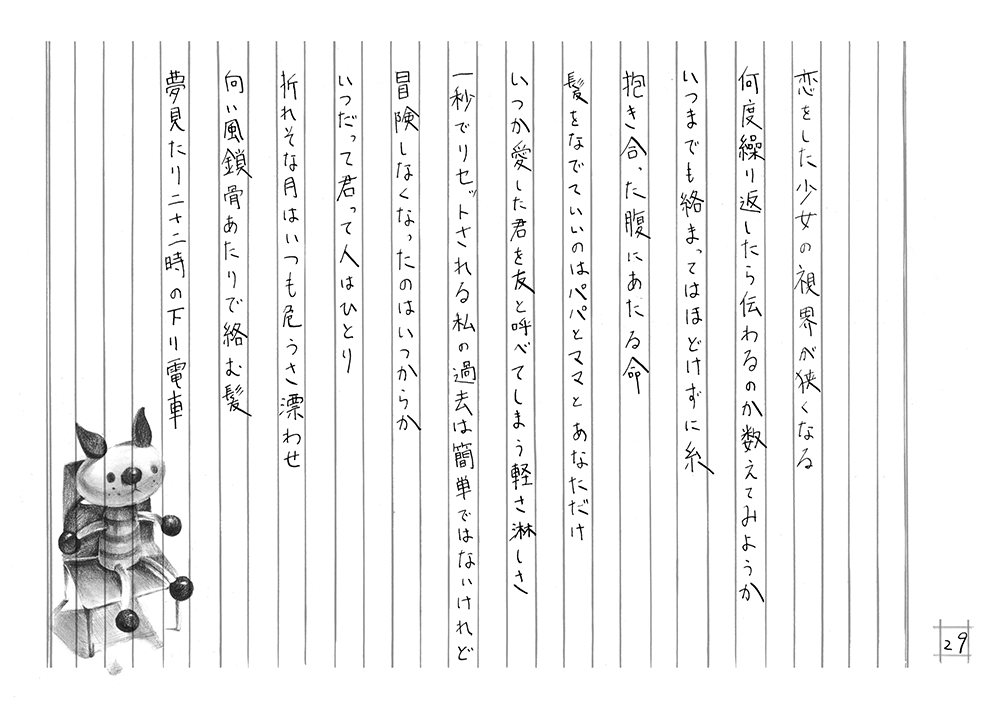 恋をした少女の視界が狭くなる
何度繰り返したら伝わるのか数えてみようか
いつまでも絡まってはほどけずに糸
抱き合った腹にあたる命
髪をなでていいのはパパとママとあなただけ
いつか愛した君を友と呼べてしまう軽さ淋しさ
一秒でリセットされる私の過去は簡単ではないけれど
冒険しなくなったのはいつからか
いつだって君って人はひとり
折れそな月はいつも危うさ漂わせ
向い風鎖骨あたりで絡む髪
夢見たり二十二時の下り電車
29